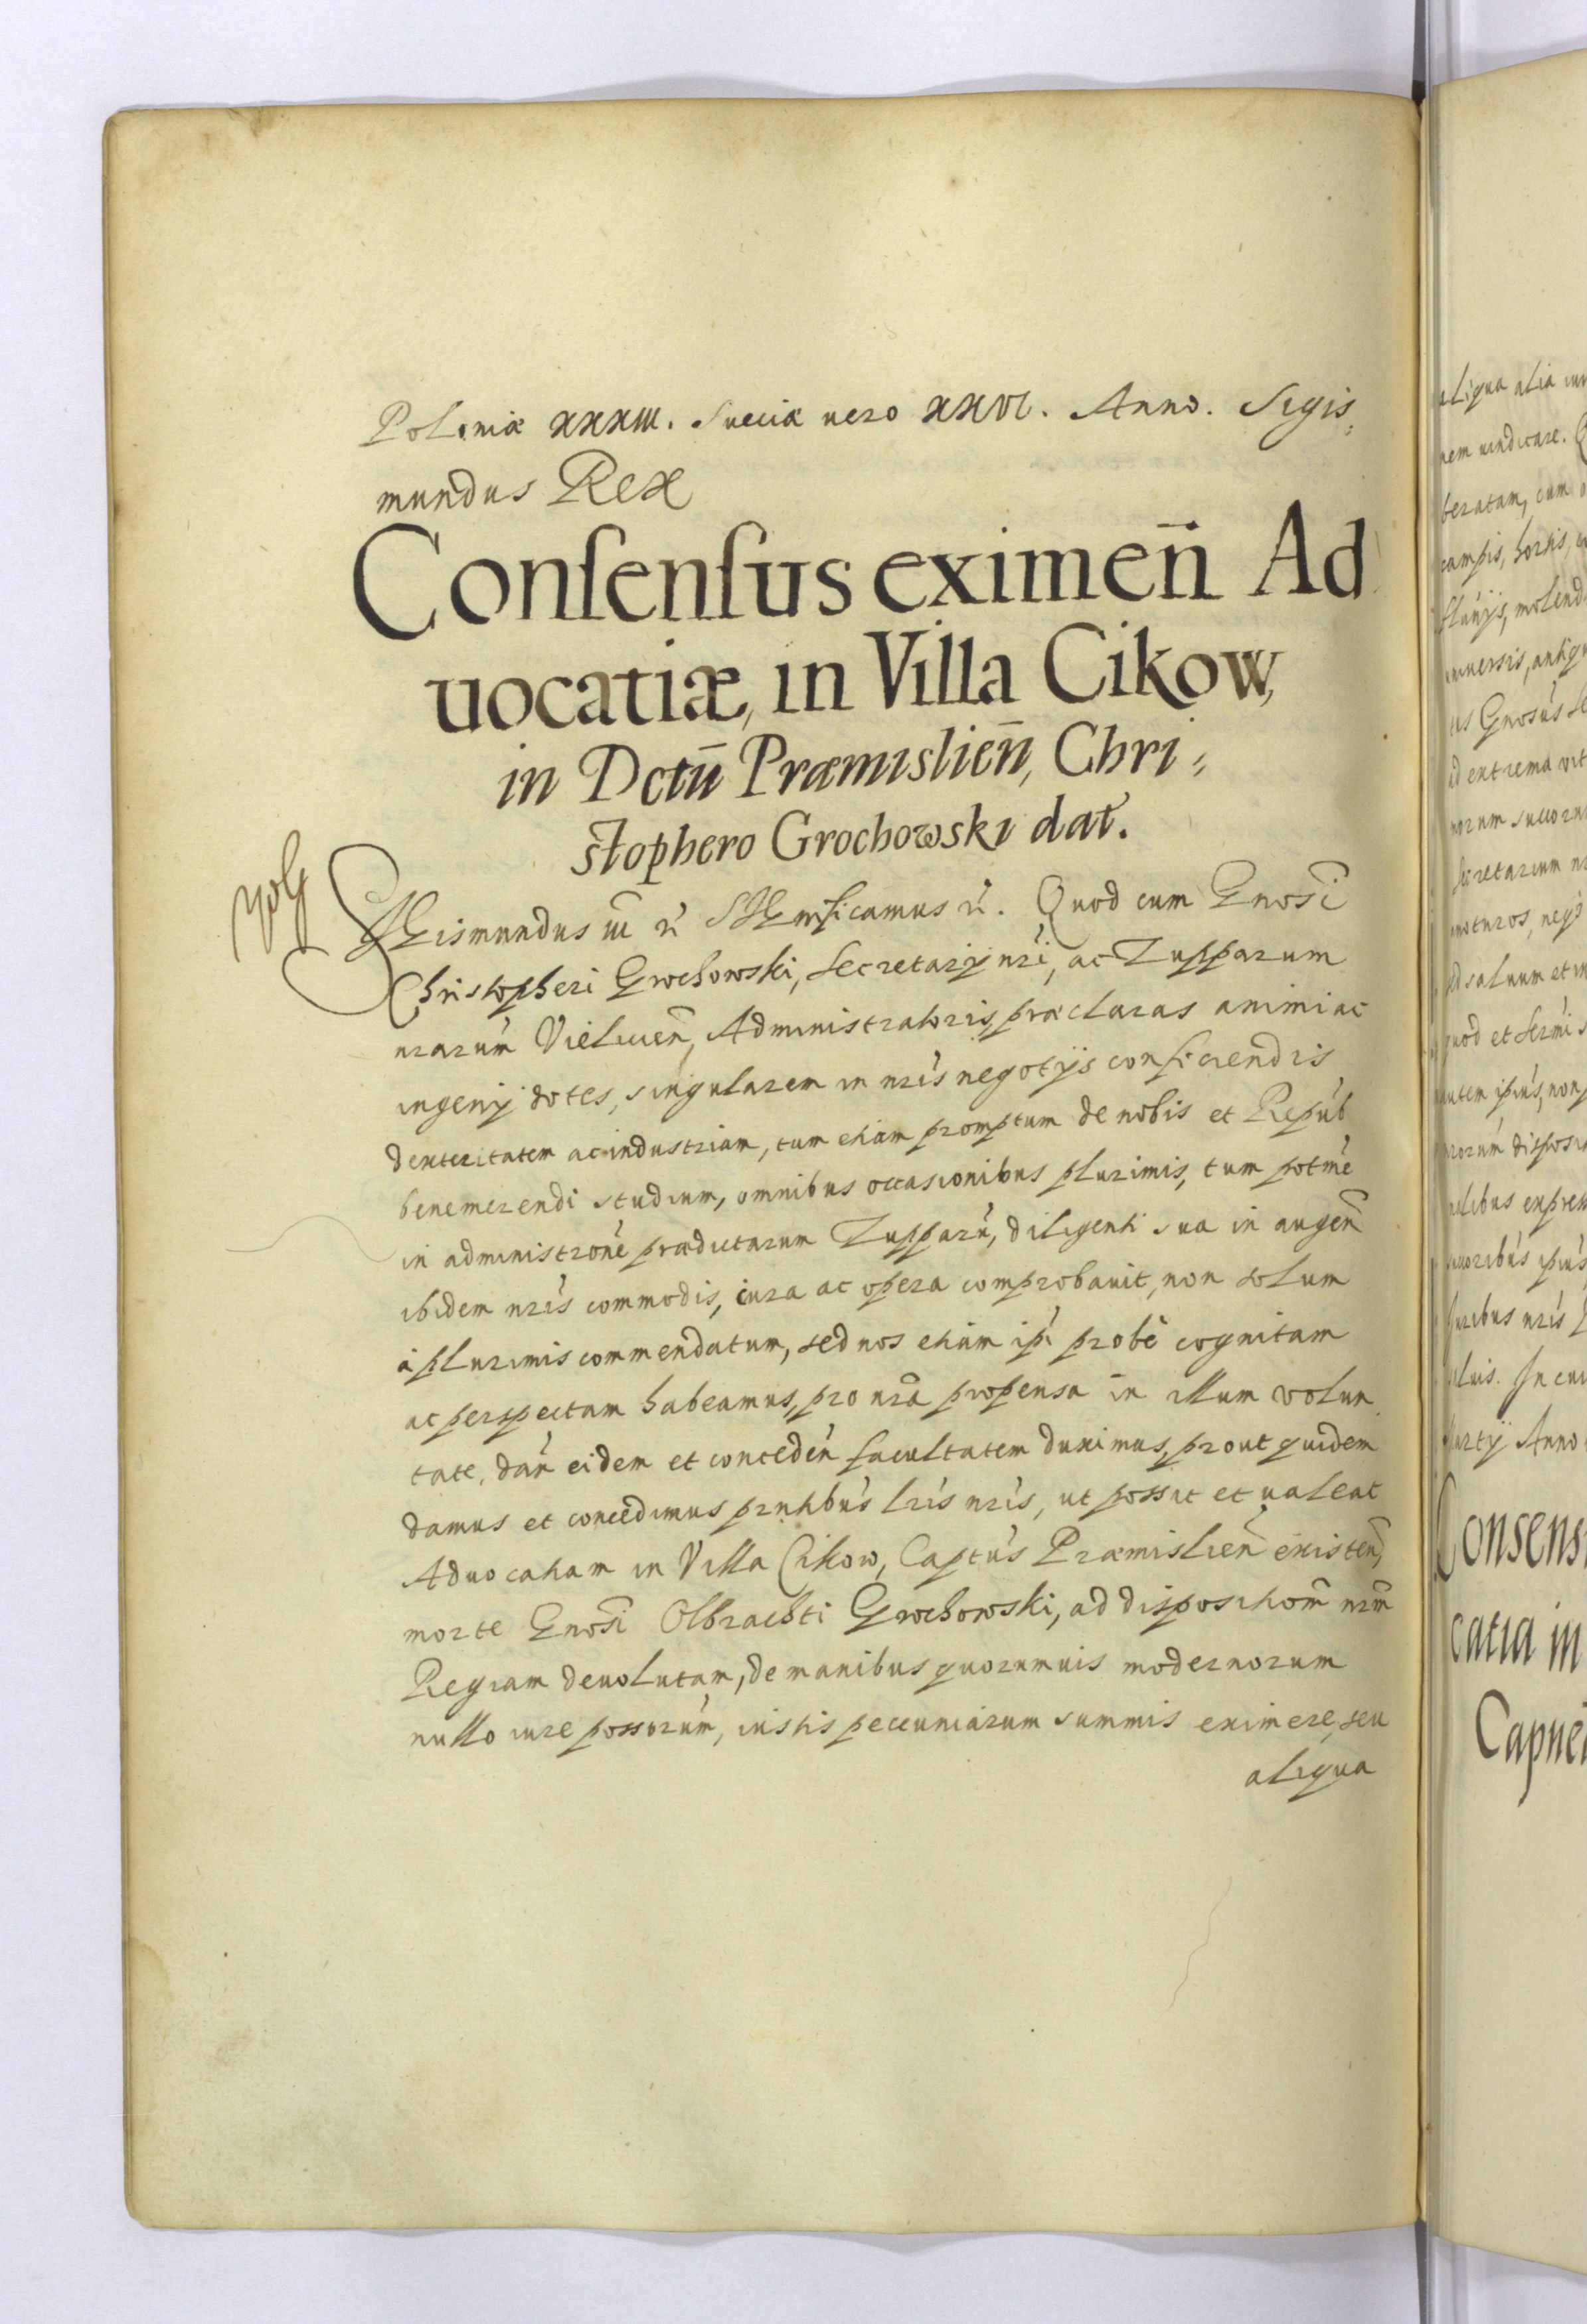 Poloniæ XXXIII. Sueciæ uero XXVI. Anno. Sigis,
mundus Rex
Conſenſus eximen̄ Ad
uocatiæ, in Villa Cikow,
in Dctū Præmislien̄, Chri,
stophero Grochowski dat̄.
SIGismundus III etc. SIGnificamus etc. Quod cum Gnosi
Christopheri Grochowski, Secretarij nri, ac Zupparum
nrarum Vieliciēn, Administratoris, præclaras animi ac
ingenij dotes, singularem in nris negotijs conficiendis
dexteritatem ac industriam, tum etiam promptum de nobis et Repub
benemerendi studium, omnibus occasionibus plurimis, tum potme
in administrone prædictarum Zupparū, diligenti sua in augen̄
ibidem nris commodis, cura ac opera comprobauit, non solum
à plurimis commendatum, sed nos etiam ipi probè cognitam
ac perspectam habeamus, pro nrā propensa in illum volun
tate, dan̄ eidem et conceden̄ facultatem duximus, prout quidem
damus et concedimus prntibus lris nris, ut possit et ualeat
Aduocatiam in Villa Cikow, Captus Præmislien̄ existen̄,
morte Gnosi Olbrachti Grochowski, ad dispositiom̄ nrm̄
Regiam deuolutam, de manibus quorumuis modernorum
nullo iure possorum, iustis pecuniarum summis eximere, seu
aliqua
aliqua alia
nem uindicare.
beratam, cum
campis, hortis,
fluuijs, molend
uniuersis, antiqu
Gnosus
ad extrema vit
Secretarium
moturos, neqs
saluum et
quod et
autem ipius, non
dispos
ipius
nris
luis. In cui
Anno
Consens
catia in
Capnei